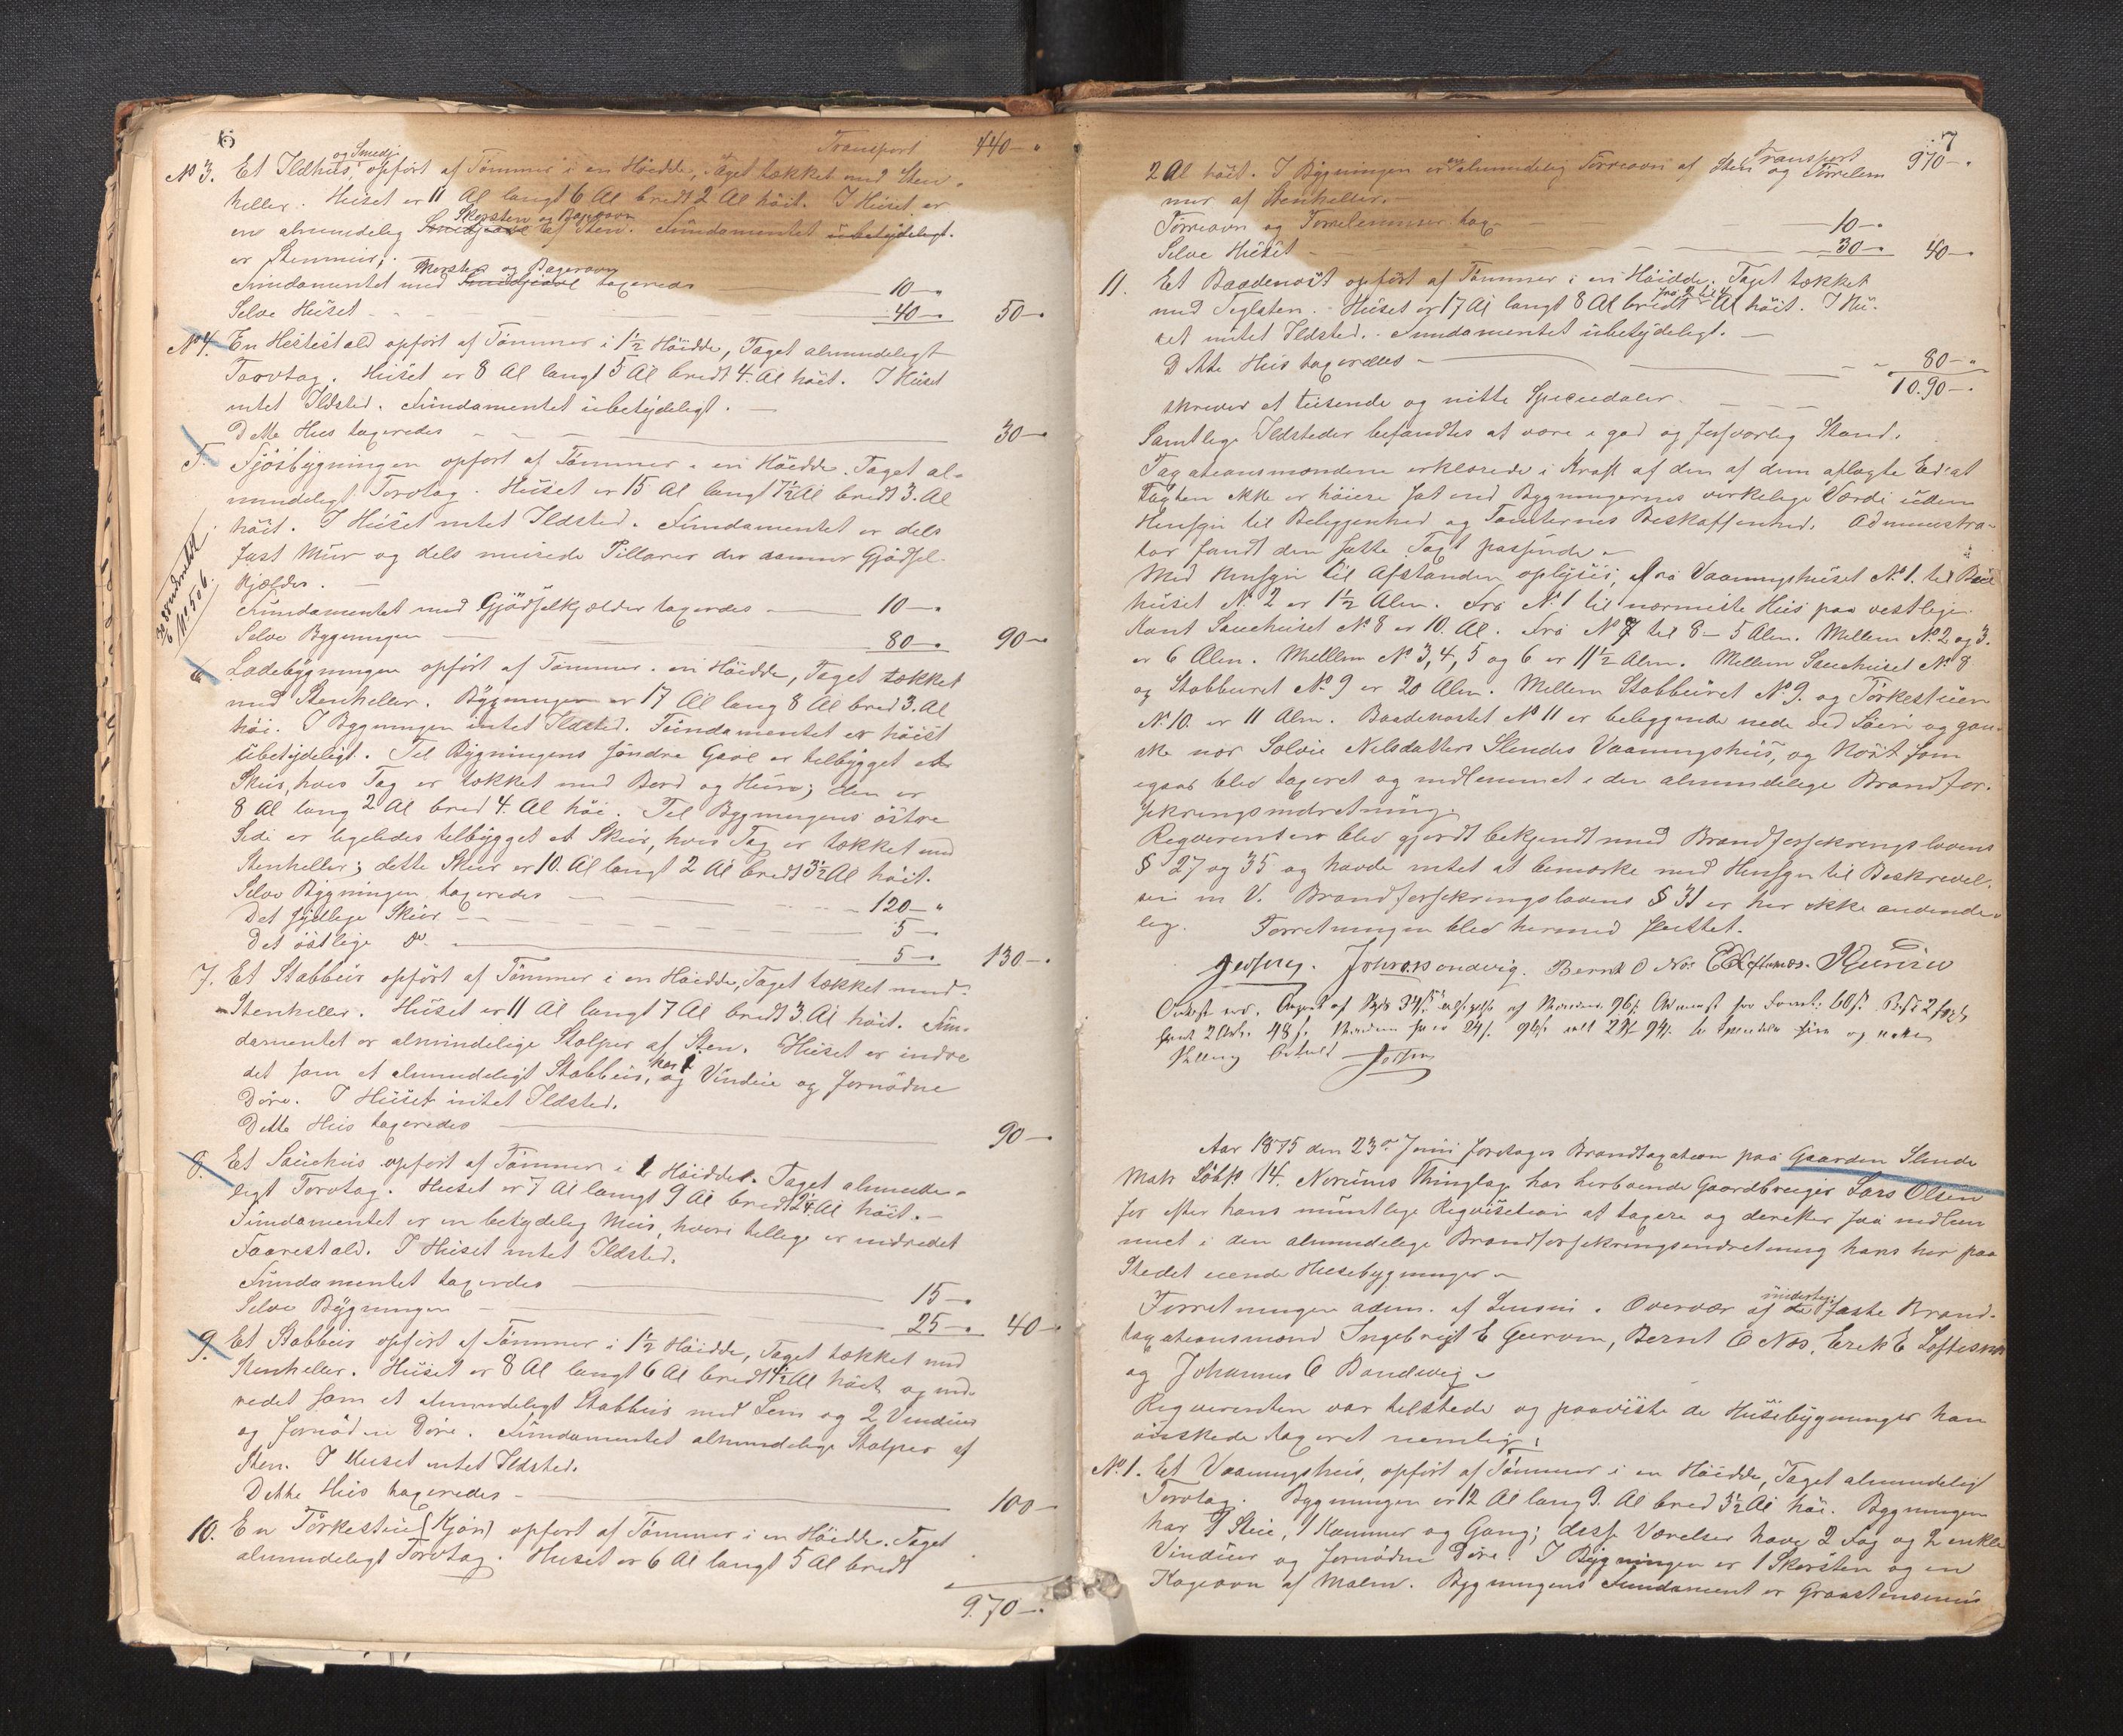 6
Transport 440-"
No 3. Et Ildhus, og Smedj opført af Tømmer i en Høidde, Taget tækket med Sten-
heller. Huset er 11 Al langt 6 Al bredt 2 Al høit. I Huset er
en almindelig Skorsten og Bagerovn af Sten. Fundamentet ubetydeligt.
er Stenmur;
Fundamentet med Skorsten og Bagerovn taxeredes 10-"
Selve Huset 40-" 50-"
No 4. En Hestestald opført af Tømmer i 1½ Høidde, Taget almindeligt
Torvtag. Huset er 8 Al langt 5 Al bredt 4 Al høit. I Huset
intet Ildsted. Fundamentet ubetydeligt.
Dette Hus taxeredes 30-"
5. Fjøsbygningen opført af Tømmer i en Høidde. Taget al-
mindeligt Torvtag. Huset er 15 Al langt 7½ Al bredt 3 Al
høit. I Huset intet Ildsted. Fundamentet er dels
fast Mur og dels murede Pillarer der danner Gjødsel-
kjælder.
Fundamentet med Gjødselkjælder taxerdes 10-"
Selve Bygningen 80-" 90-"
No 506.
6. Ladebygningen opført af Tømmer i en Høidde, Taget tækket
med Stenheller. Bygningen er 17 Al lang 8 Al bred 3 Al
høi. I Bygningen intet Ildsted. Fundamentet er høist
ubetydeligt. Til Bygningens søndre Gavl er tilbygget et
Skur, hvis Tag er tækket med Bord og Huun; den er
8 Al lang 2 Al bred 4 Al høi. Til Bygningens østre
Side er ligeledes tilbygget et Skur, hvis Tag er tækket med
Stenheller; dette Skur er 10 Al langt 2 Al bredt 3½ Al høit.
Selve Bygningen taxeredes 120-"
Det sydlige Skur 5-"
Det østlige do. 5-" 130-"
7. Et Stabbur opført af Tømmer i en Høidde, Taget tækket med
Stenheller. Huset er 11 Al langt 7 Al bredt 3 Al høit. Fun-
damentet er almindelige Stolper af Sten. Huset er indre
det som et almindeligt Stabbur, har 1 og Vindue og fornødne
Døre. I Huset intet Ildsted.
Dette Hus taxeredes 90-"
8. Et Sauehus opført af Tømmer i 1 Høidde. Taget alminde-
ligt Torvtag. Huset er 7 Al langt 9 Al bredt 2¼ Al høit.
Fundamentet er en betydelig Mur, hvori tillige er indredet
Faarestald. I Huset intet Ildsted.
Fundamentet taxerdes 15-"
Selve Bygningen 25-" 40-"
9. Et Stabbur opført af Tømmer i 1½ Høidde, Taget tækket med
Stenheller. Huset er 8 Al langt 6 Al bredt 4½ Al høit og ind-
redet som et almindeligt Stabbur med Lem og 2 Vinduer
og fornødne Døre. Fundamentet almindelige Stolper af
Sten. I Huset intet Ildsted.
Dette Hus taxeredes 100-
10. En Tørkestue (Kjøn) opført af Tømmer i en Høidde. Taget
almindeligt Torvtag. Huset er 6 Al langt 5 Al bredt
970-"
7
Transport 970-"
2 Al høit. I Bygningen er en almindelig Tørreovn af Sten og Tørrelem
mer af Stenheller.
Tørreovn og Tørrelemmer tax. 10-"
Selve Huset 30-" 40-"
11. Et Baadenøst opført af Tømmer i en Høidde. Taget tækket
med Teglsten. Huset er 17 Al langt 8 Al bredt fra 2 til 4 Al høit. I Hu-
set intet Ildsted. Fundamentet ubetydeligt.
Dette Hus taxeredes 80-"
1090-"
skriver et tusende og nitte Speciedaler.
Samtlige Ildsteder befandtes at være i god og forsvarlig Stand.
Taxationsmændene erklærede i Kraft af den af dem aflagte Ed at
Taxten ikke er høiere sat end Bygningernes virkelige Værdi uden
Hensyn til Beliggenhed og Tomternes Beskaffenhed. Administra-
tor fandt den satte Taxt passende.
Med Hensyn til Afstanden oplyses, at fra Vaaningshuset No 1. til Bui
huset No 2 er 1½ Alen. Fra No 1 til nærmeste Hus paa vestlige
Kant Sauehuset No 8 er 10 Al. Fra No 7 til 8 - 5 Alen. Mellem No 2 og 3.
er 6 Alen. Mellem No 3, 4, 5 og 6 er 11½ Alen. Mellem Sauehuset No 8
og Stabburet No 9 er 20 Alen. Mellem Stabburet No 9. og Tørkestuen
No 10. er 11 Alen. Baadenøstet No 11 er beliggende nede ved Søen og gan-
ske nær Solvie Nilsdatters Slindes Vaaningshus, og Nøst som
igaar blev taxeret og indlemmet i den almindelige Brandfor-
sikringsindretning.
Reqverenten blev gjordt bekjendt med Brandforsikringslovens
§ 27 og 35 og havde intet at bemærke med Hensyn til Beskrivel-
sen m V. Brandforsikringslovens § 31 er her ikke anvende-
lig. Forretningen blev hermed sluttet.
Bernt O Næs
Aar 1875 den 23de Juni foretoges Brandtaxation paa Gaarden Slinde
Matr Løbno 14. Norums Thinglag hos herboende Gaardbruger Lars Olsen
for efter hans mundtlige Reqvisition at taxere og derefter faa indlem
met i den almindelige Brandforsikringsindretning hans her paa
Stedet eiende Husebygninger.
Forretningen adm. af Lensm. i Overvær af de undertegn. faste Brand-
taxationsmænd Ingebrigt E Gurvin, Bernt O Næs, Erik E Loftesnæs
og Johannes O Bondevig.
Reqverenten var tilstede og paaviste de Husebygninger han
ønskede taxeret nemlig:
No 1. Et Vaaningshus, opført af Tømmer i en Høidde, Taget almindeligt
Torvtag. Bygningen er 12 Al lang 9 Al bred 3½ Al høi. Bygningen
har 1 Stue, 1 Kammer og Gang; disse Værelser have 2 Fag og 2 enkle
Vinduer og fornødne Døre. I Bygningen er 1 Skorsten og en
Kogeovn af Malm. Bygningens Fundament er Graastensmur